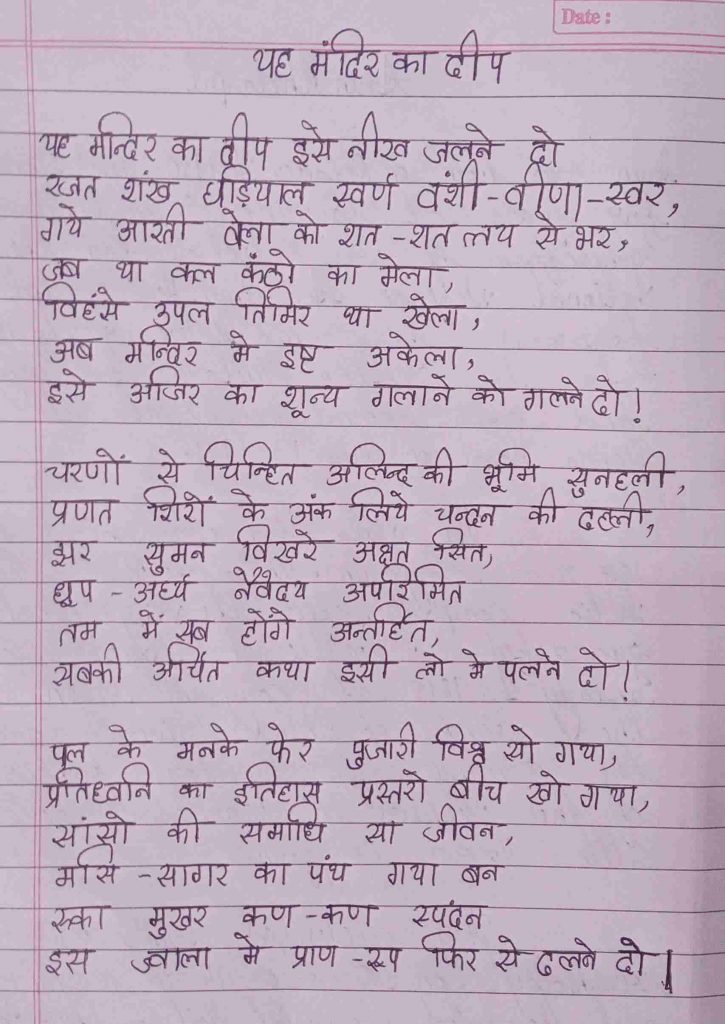 Date :
यह मंदिर का दीप
यह मन्दिर का दीप इसे नीरव जलने दो
रजत शंख घड़ियाल स्वर्ण वंशी-वीणा-स्वर,
गये आरती वेला को शत-शत लय से भर,
जब था कल कंठो का मेला,
विहंसे उपल तिमिर था खेला,
अब मन्दिर मे इष्ट अकेला,
इसे अजिर का शून्य गलाने को गलने दो!
चरणों से चिन्हित अलिन्द की भूमि सुनहली,
प्रणत शिरों के अंक लिये चन्दन की दहली,
झर सुमन बिखरे अक्षत सित,
धूप-अर्घ्य नैवेदय अपरिमित
तम में सब होंगे अन्तर्हित,
सबकी अर्चित कथा इसी लो मे पलने दो!
पल के मनके फेर पुजारी विश्व सो गया,
प्रतिध्वनि का इतिहास प्रस्तरो बीच खो गया,
सांसो की समाधि सा जीवन,
मसि-सागर का पंथ गया बन
रुका मुखर कण-कण स्पंदन
इस ज्वाला मे प्राण-रूप फिर से ढलने दो|